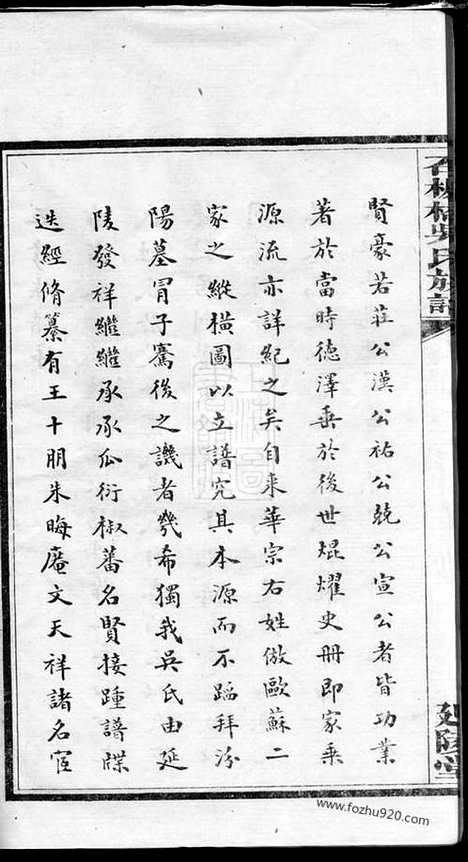 賢豪若莊公漢公祐公兢公宣公者皆功業
著於當時德澤垂於後世焜燿史冊即家乘
源流亦詳紀之矣自來華宗右姓倣歐蘇二
家之縱橫圖以立譜究其本源而不蹈拜汾
陽墓冒子騫後之譏者幾希獨我吳氏由延
陵發祥繼繼承承瓜衍椒蕃名賢接踵譜牒
迭經脩纂有王十朋朱晦庵文天祥諸名宦
吳氏族譜
延陵堂
www.fozhu920.com